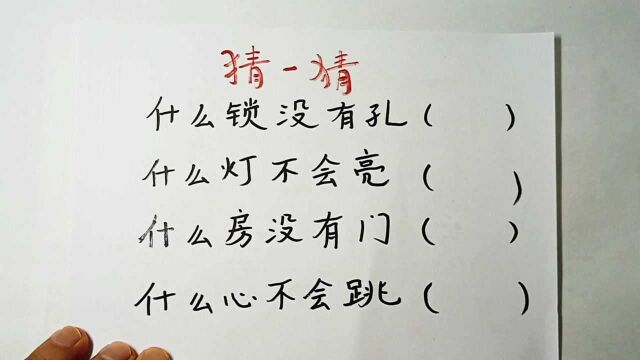 猜一猜
什么锁没有孔（ ）
什么灯不会亮（ ）
什么房没有门（ ）
什么心不会跳（ ）